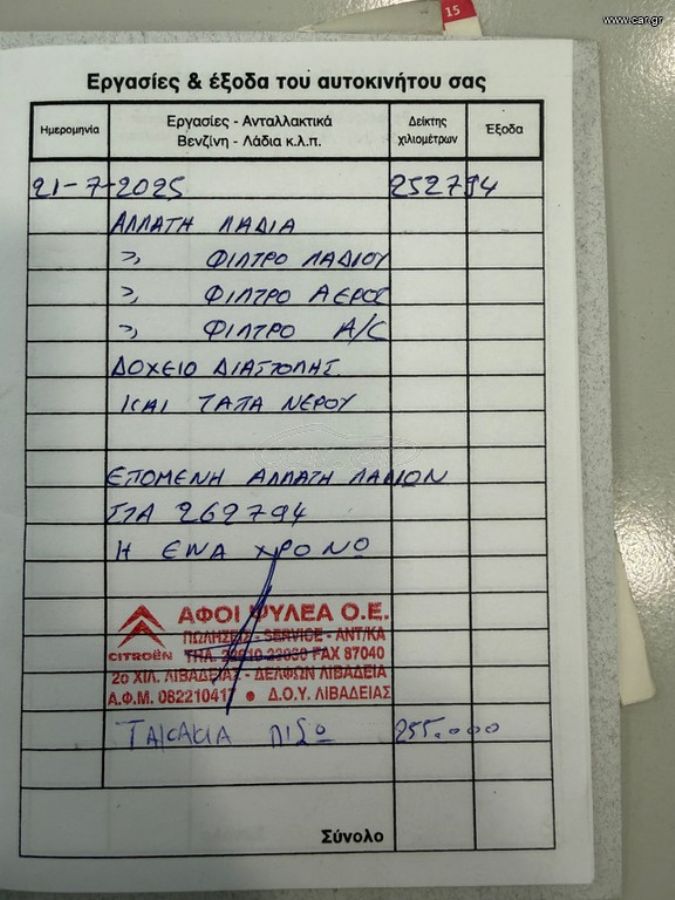 15
www.car.gr
Εργασίες & έξοδα του αυτοκινήτου σας
Ημερομηνία
Εργασίες - Ανταλλακτικά
Βενζίνη - Λάδια κ.λ.π.
Δείκτης
χιλιομέτρων
Έξοδα
21-7-2025 252794
ΑΛΛΑΓΗ ΛΑΔΙΑ
〃 ΦΙΛΤΡΟ ΛΑΔΙΟΥ
〃 ΦΙΛΤΡΟ ΑΕΡΟΣ
〃 ΦΙΛΤΡΟ A/C
ΔΟΧΕΙΟ ΔΙΑΣΤΟΛΗΣ
ΚΑΙ ΤΑΠΑ ΝΕΡΟΥ
ΕΠΟΜΕΝΗ ΑΛΛΑΓΗ ΛΑΔΙΩΝ
ΓΙΑ 262794
Η ΕΝΑ ΧΡΟΝΟ
ΑΦΟΙ ΨΥΛΕΑ Ο.Ε.
ΠΩΛΗΣΕΙΣ - SERVICE - ΑΝΤ/ΚΑ
CITROËN ΤΗΛ. FAX 87040
2ο ΧΙΛ. ΛΙΒΑΔΕΙΑΣ - ΔΕΛΦΩΝ ΛΙΒΑΔΕΙΑ
Α.Φ.Μ. 082210417 ● Δ.Ο.Υ. ΛΙΒΑΔΕΙΑΣ
ΤΑΚΑΚΙΑ ΠΙΣΩ 255.000
Σύνολο